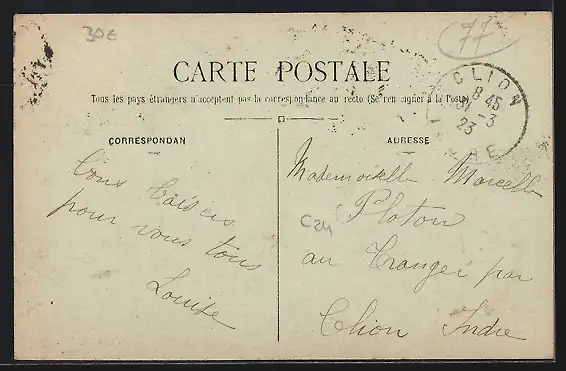 30€
77
CARTE POSTALE
Tous les pays étrangers n'acceptent pas la correspondance au recto (Se renseigner à la Poste)
CLION
8 45
31 - 3
23
INDRE
CORRESPONDAN
ADRESSE
Bons baisers
pour vous tous
Louise
Mademoiselle Marcelle
Platon
C24
au Tranger par
Clion Indre